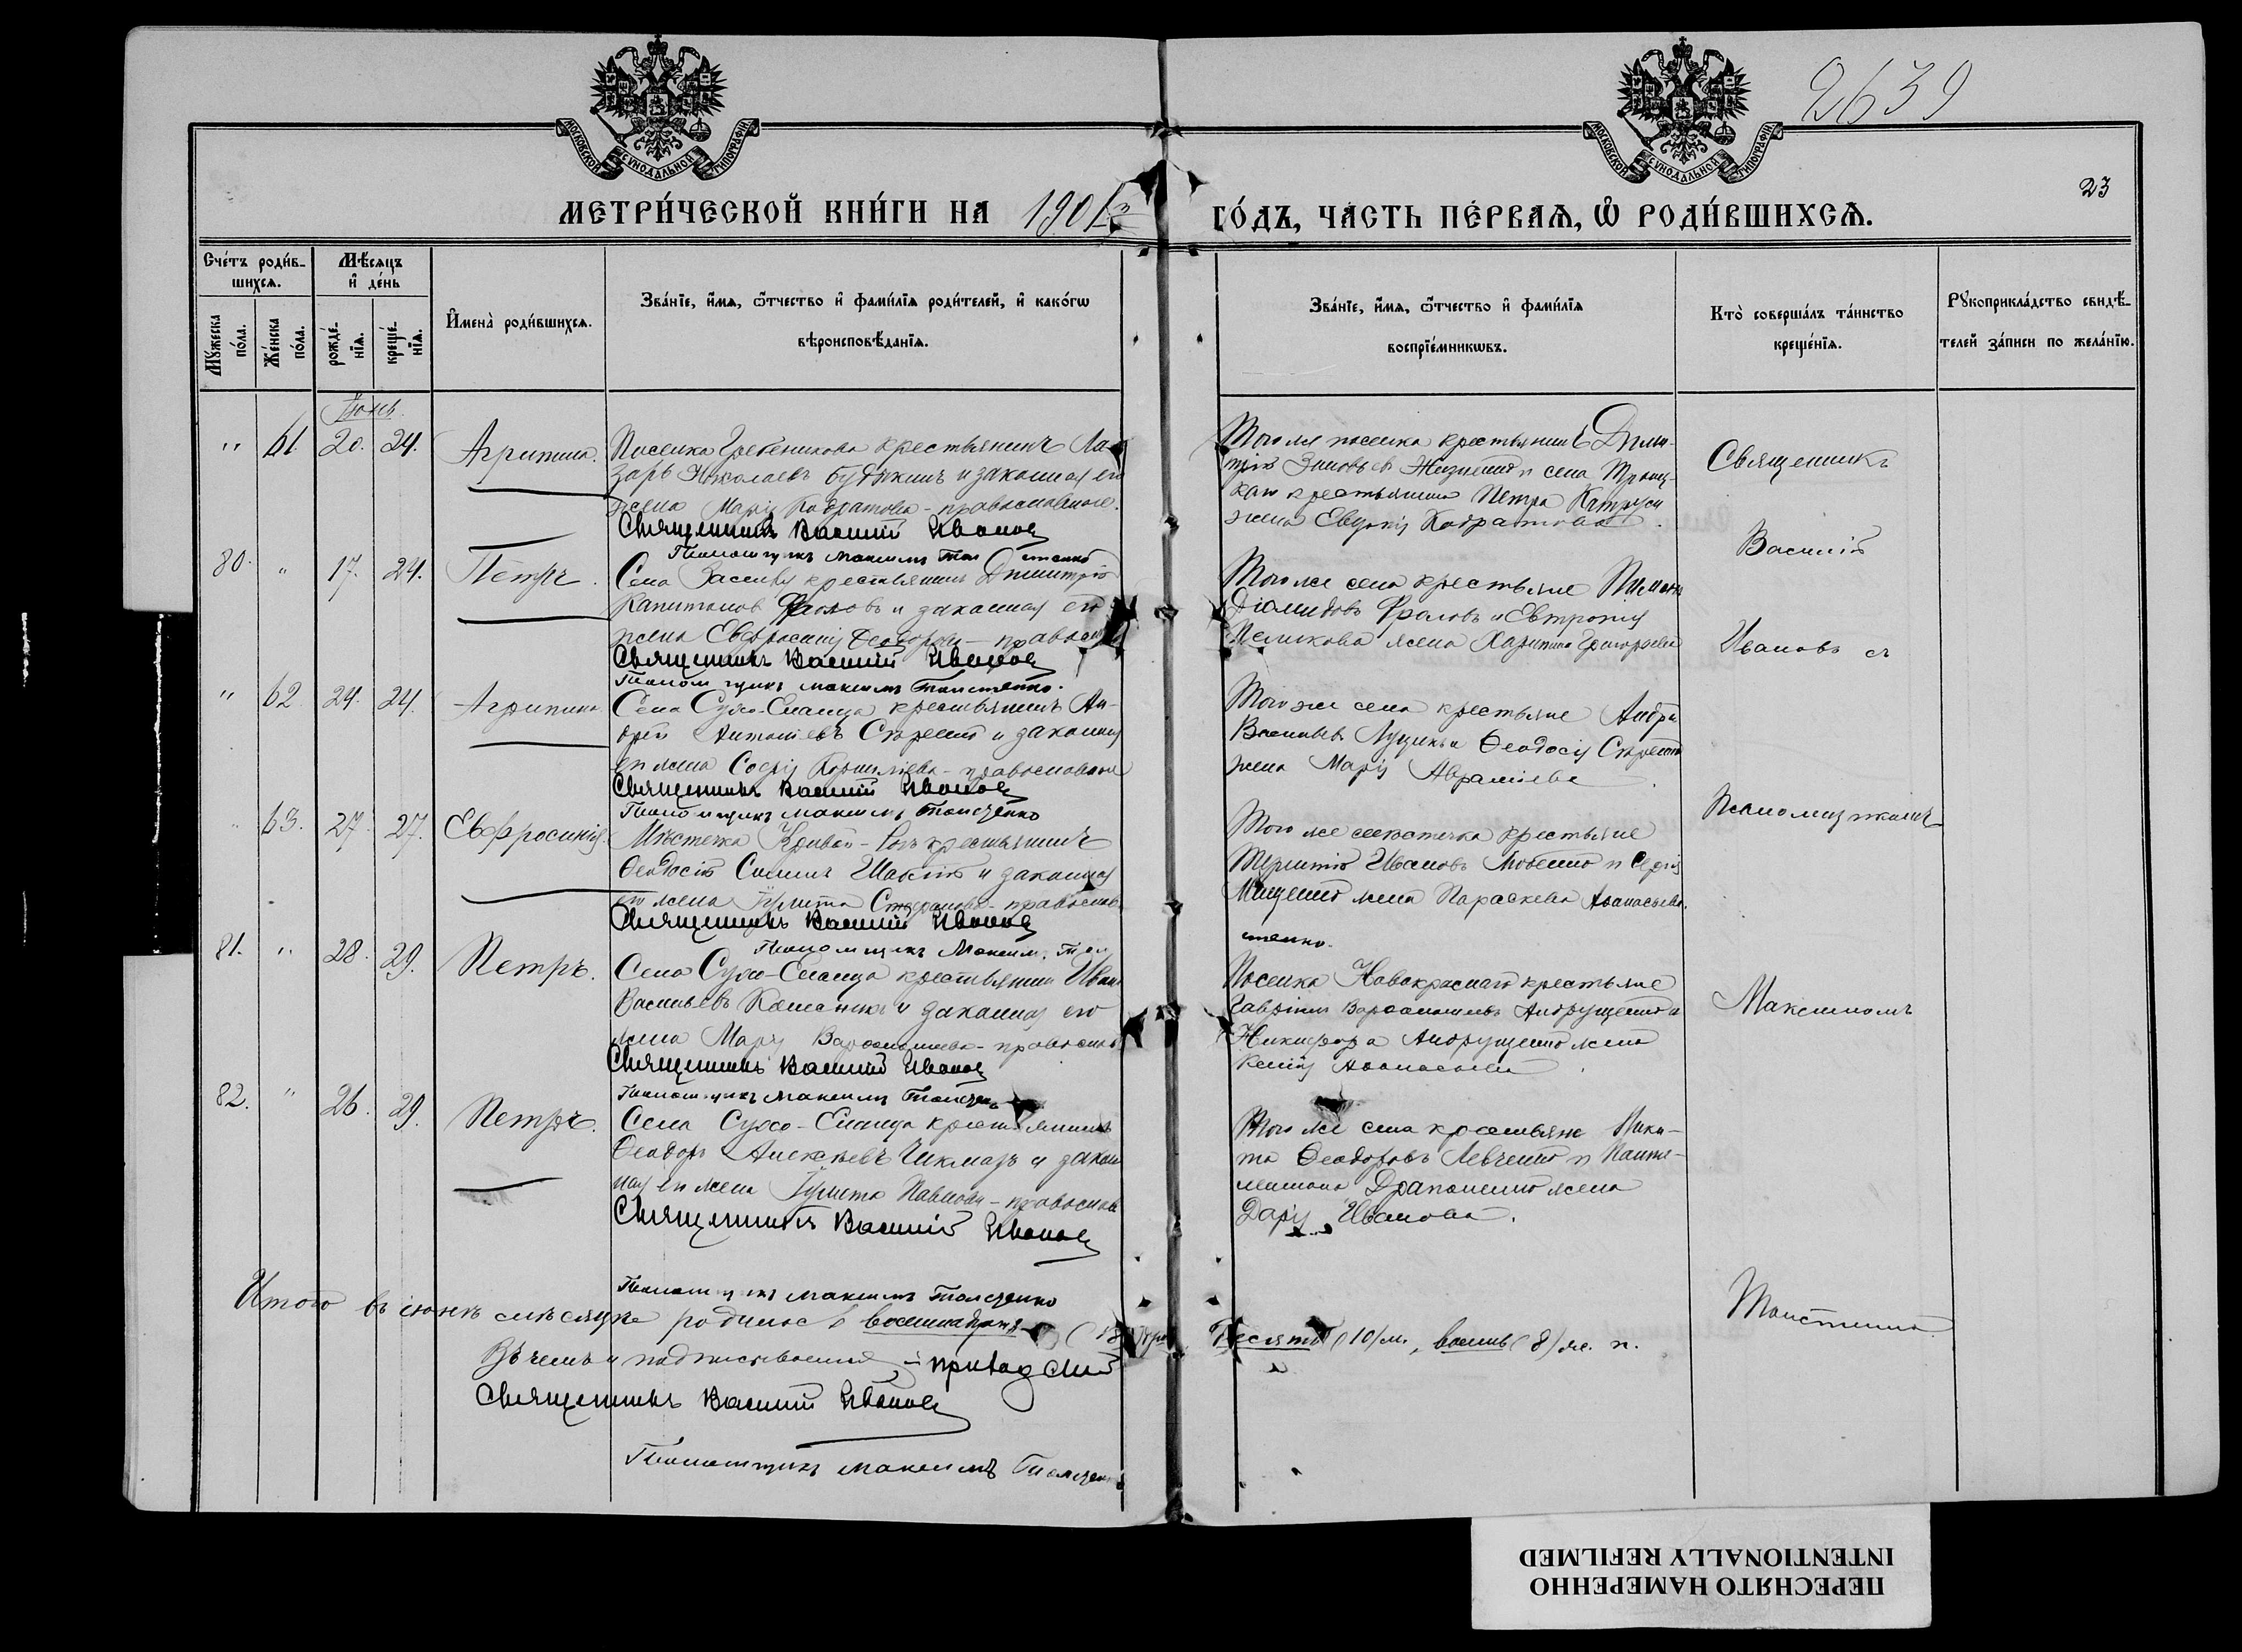 2639
23
МОСКОВСКОЙ СѴНОДАЛЬНОЙ ТИПОГРАФІИ
МОСКОВСКОЙ СѴНОДАЛЬНОЙ ТИПОГРАФІИ
МЕТРИ́ЧЕСКОЙ КНИ́ГИ НА 1901
ГО́ДЪ, ЧА́СТЬ ПЕ́РВАѦ, Ѿ РОДИ́ВШИХСѦ.
Сче́тъ роди́в-
шихсѧ.
Мѣ́сѧцъ
и҆ де́нь
Мꙋ́жеска
по́ла.
Же́нска
по́ла.
рожде́-
нїѧ.
креще́-
нїѧ.
И҆мена̀ роди́вшихсѧ.
Зва́нїе, и҆́мѧ, ѻ҆́тчество и҆ фами́лїѧ роди́телей, и҆ како́гѡ
вѣроисповѣ́данїѧ.
Зва́нїе, и҆́мѧ, ѻ҆́тчество и҆ фами́лїѧ
воспрїе́мникѡвъ.
Кто̀ соверша́лъ та́инство
креще́нїѧ.
Рꙋкоприкла́дство свидѣ́-
телей за́писи по жела́нїю.
Іюнь.
" 61. 20. 24. Агрипина.
Поселка Гребеникова крестьянинъ Ла-
зарь Николаевъ и законная его
жена Марія Кодратова - православные.
Священникъ Василій Ивановъ
Псаломщикъ Максимъ Толстенко
Того же поселка крестьянинъ Дими-
трій Зиновьев и села
крестьянина Петра
жена Евдокія Кодратова.
Священникъ
80. " 17. 24. Петръ.
Села крестьянинъ Димитрій
Капитонов Фроловъ и законная его
жена Евфросинія Феодорова - правосл
Священникъ Василій Ивановъ
Псаломщикъ Максимъ Толстенко.
Того же села крестьяне Пимонъ
Діомидовъ Фроловъ и Евтропія
жена Харитина Григорьева
Василій
Ивановъ съ
" 62 24. 24. Агрипина
Села Сухо-Еланца крестьянинъ Ан-
дрей Антоніевъ и законная
его жена Софія Корниліева - православные
Священникъ Василій Ивановъ
Псаломщикъ Максимъ Толстенко
Того же села крестьяне Андрей
Васильев и Феодосія
жена Марія Авраміева
" 63. 27. 27. Евфросинія.
Мѣстечка Кривой-Рогъ крестьянинъ
Феодосій и законная
его жена Іулита Стефанова - православ
Священникъ Василій Ивановъ
Псаломщикъ Максимъ Тол
стенко.
Того же мѣстечка крестьяне
Терентій Ивановъ и
Мищенко жена Параскева Аѳанасьева.
Псаломщикомъ
81. " 28. 29. Петръ.
Села Сухо-Еланца крестьянин Иванъ
Васильевъ и законная его
жена Марія Варѳоломеева - правосла
Священникъ Василій Ивановъ
Псаломщикъ Максимъ Толстен
Поселка Новокраснаго крестьяне
Гавріилъ Варѳоломеевъ Андрущенко и
Никифора Андрущенко жена
Ксенія Аѳанасьева.
Максимомъ
82. " 26. 29. Петръ.
Села Сухо-Еланца крестьянинъ
Феодоръ Алексѣевъ Чикмазъ и закон
ная его жена Іулита Павлова - православ
Священникъ Василій Ивановъ
Псаломщикъ Максимъ Толстенко
Того же села крестьяне Ники-
та Феодоровъ Левченко и Панте-
леимона Драпоненко жена
Дарія Иванова.
Итого въ іюнѣ мѣсяцѣ родилось восемнадцать (18)
Десять (10) м., восемь (8) ж. п.
Въ чемъ и подписываемся: приходскій
Священникъ Василій Ивановъ
Псаломщикъ Максимъ Толстенко
ПЕРЕСНЯТО НАМЕРЕННО
INTENTIONALLY REFILMED